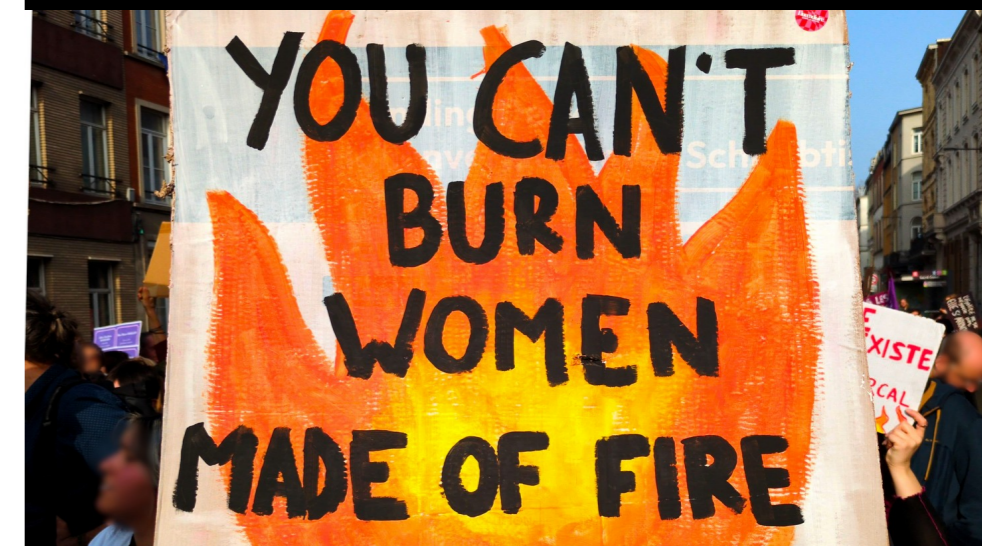 YOU CAN'T
BURN
WOMEN
MADE OF FIRE
XISTE
RCAL